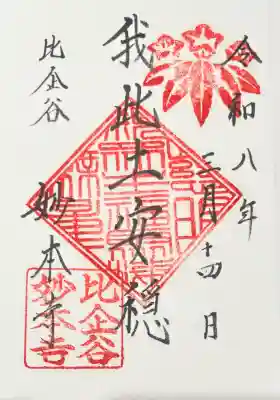 令和八年
三月十四日
我此土安穏
比企谷
妙本寺
比企谷
妙本寺